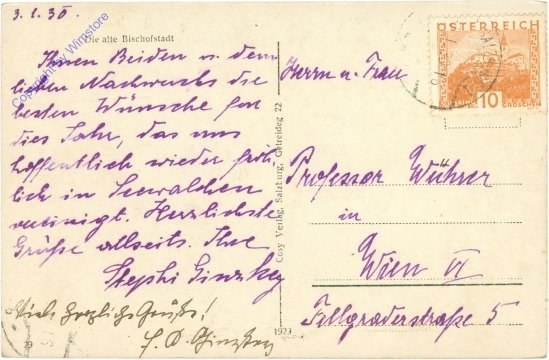 3.1.30.
Die alte Bischofstadt
Copyright by Wimstore
Ihnen Beiden u. dem
lieben Nachwuchs die
besten Wünsche for
dies Jahr, das uns
hoffentlich wieder fröh-
lich in Seewalchen
vereinigt. Herzlichste
Grüße allseits. Ihre
Stephi Ginzkey
Viele herzliche Grüße!
Cosy Verlag, Salzburg, Getreideg 22
1929
ÖSTERREICH
10 GROSCHEN
Herrn u. Frau
Professor Wührer
in
Wien VI
Fillgraderstraße 5